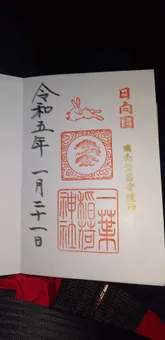 日向國
一葉
稲荷
神社
令和五年 一月二十一日